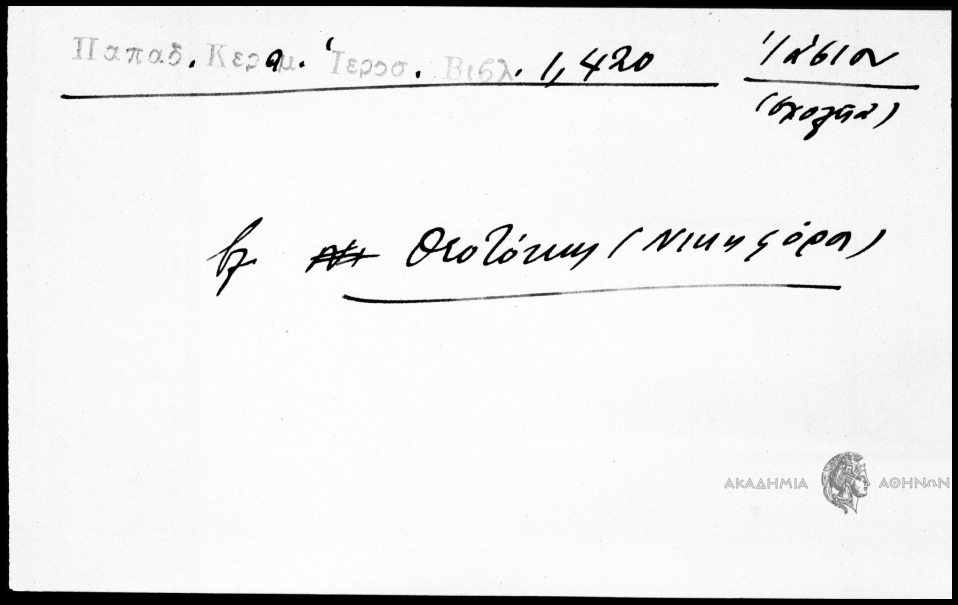 Παπαδ. Κεραμ. Ἱεροσ. Βιβλ. 1,420 Ἰάσιον
(σχολεῖα)
βλ. Θεοτόκης (Νικηφόρου)
ΑΚΑΔΗΜΙΑ ΑΘΗΝΩΝ